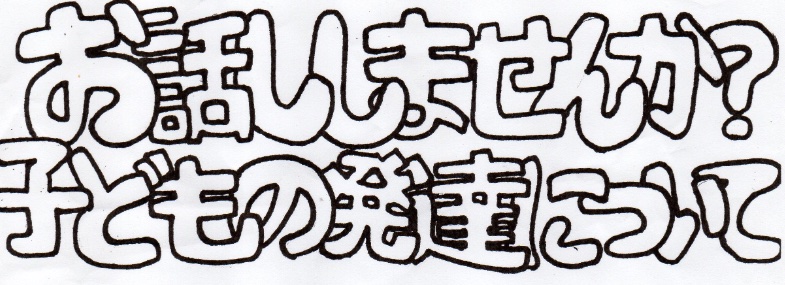 お話ししませんか?
子どもの発達について